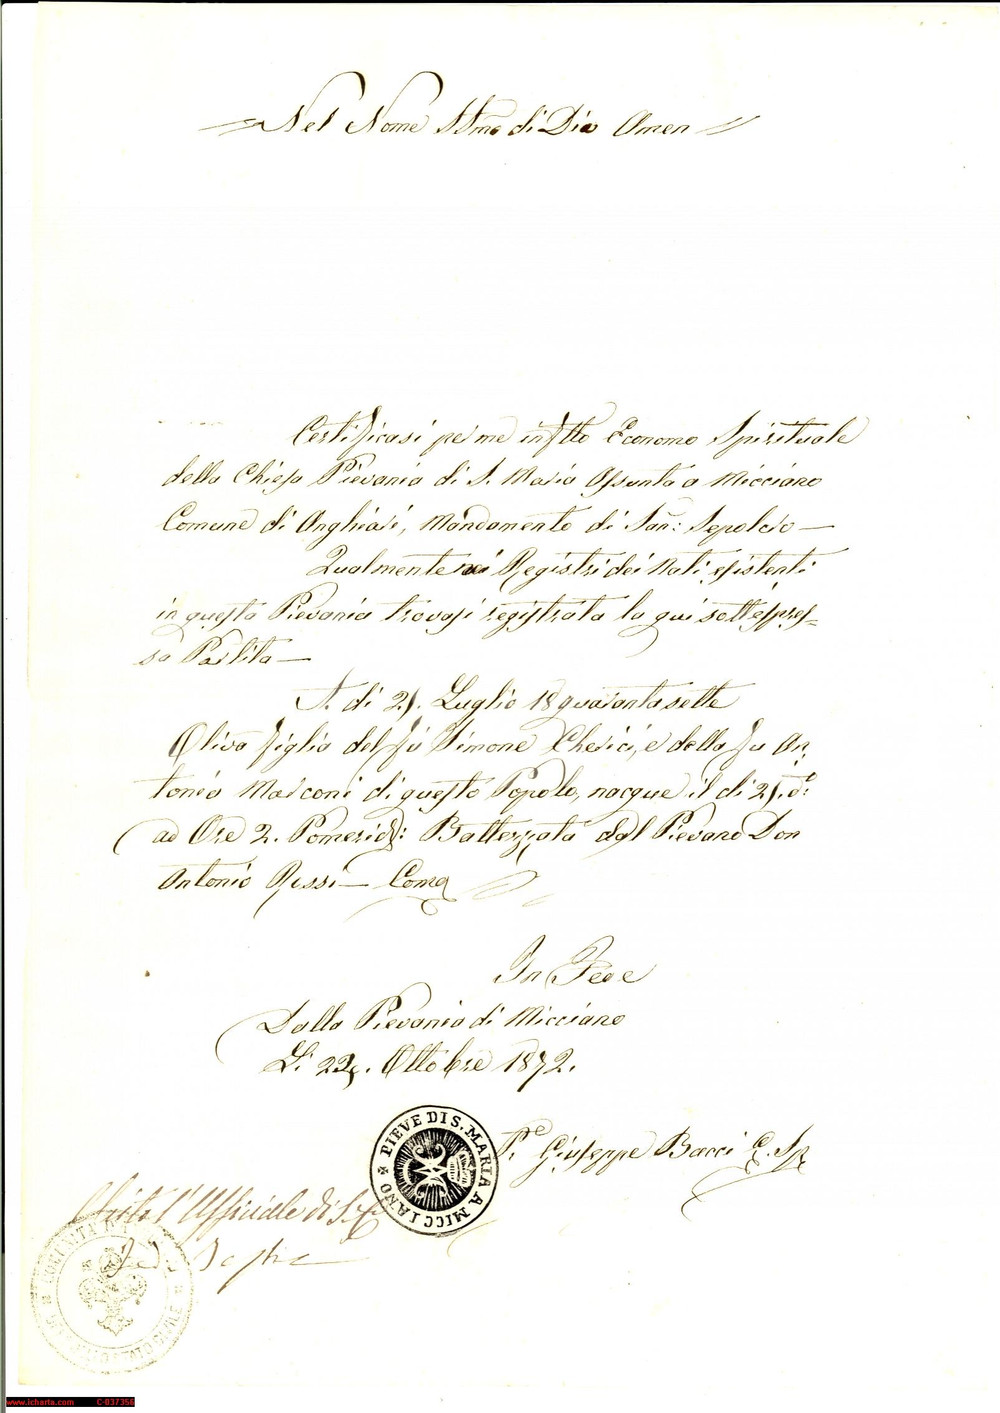 Nel Nome SSmo di Dio Amen
Certificasi per me infstto Economo Spirituale
della Chiesa Pievania di S. Maria Assunta a Micciano
Comune di Anghiari, Mandamento di San: Sepolcro —
Qualmente nei Registri dei Nati esistenti
in questa Pievania trovasi registrata la qui sottespres-
sa Partita —
A dì 21. Luglio 18quarantasette
Oliva figlia del fu Simone Cherici, e della fu An,
tonia Marconi di questo Popolo, nacque il dì 21. do:
ad Ore 2. Pomerid: Battezzata dal Pievano Don
Antonio Rossi —
In Fede
Dalla Pievania di Micciano
Li 22. Ottobre 1872.
Pe Giuseppe Bacci E. Sp
PIEVE DI S. MARIA A MICCIANO
Visto l'Uffiziale di S. C.
COMUNITA D'ANGHIARI
www.icharta.com C-037356